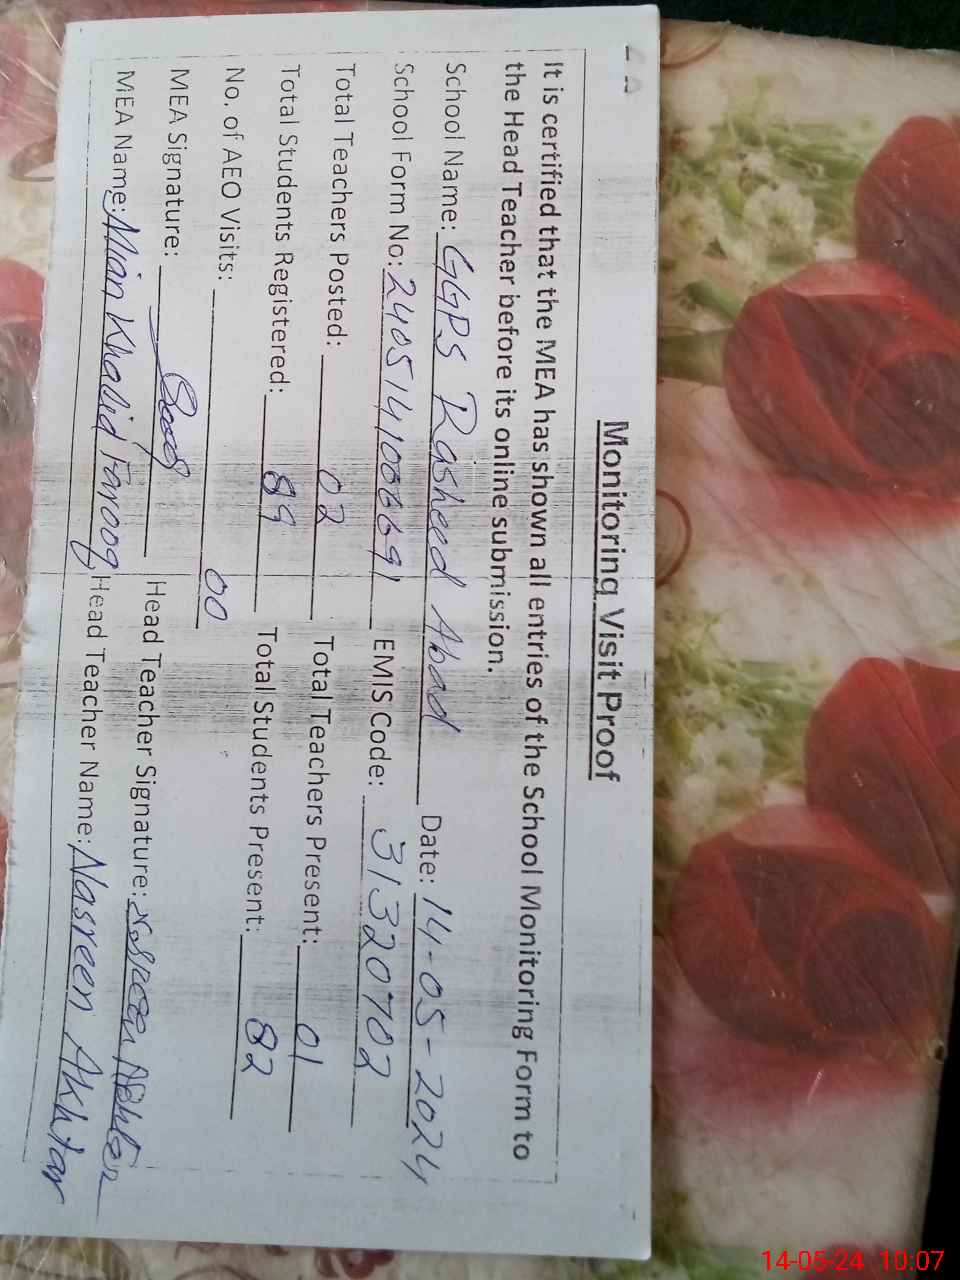 Monitoring Visit Proof
It is certified that the MEA has shown all entries of the School Monitoring Form to
the Head Teacher before its online submission.
School Name: GGPS Rasheed Abad Date: 14-05-2024
School Form No: 2405141006691 EMIS Code: 31320702
Total Teachers Posted: 02 Total Teachers Present: 01
Total Students Registered: 89 Total Students Present: 82
No. of AEO Visits: 00
MEA Signature: Head Teacher Signature: Nasreen Akhter
MEA Name: Mian Khalid Farooq Head Teacher Name: Nasreen Akhtar
14-05-24 10:07